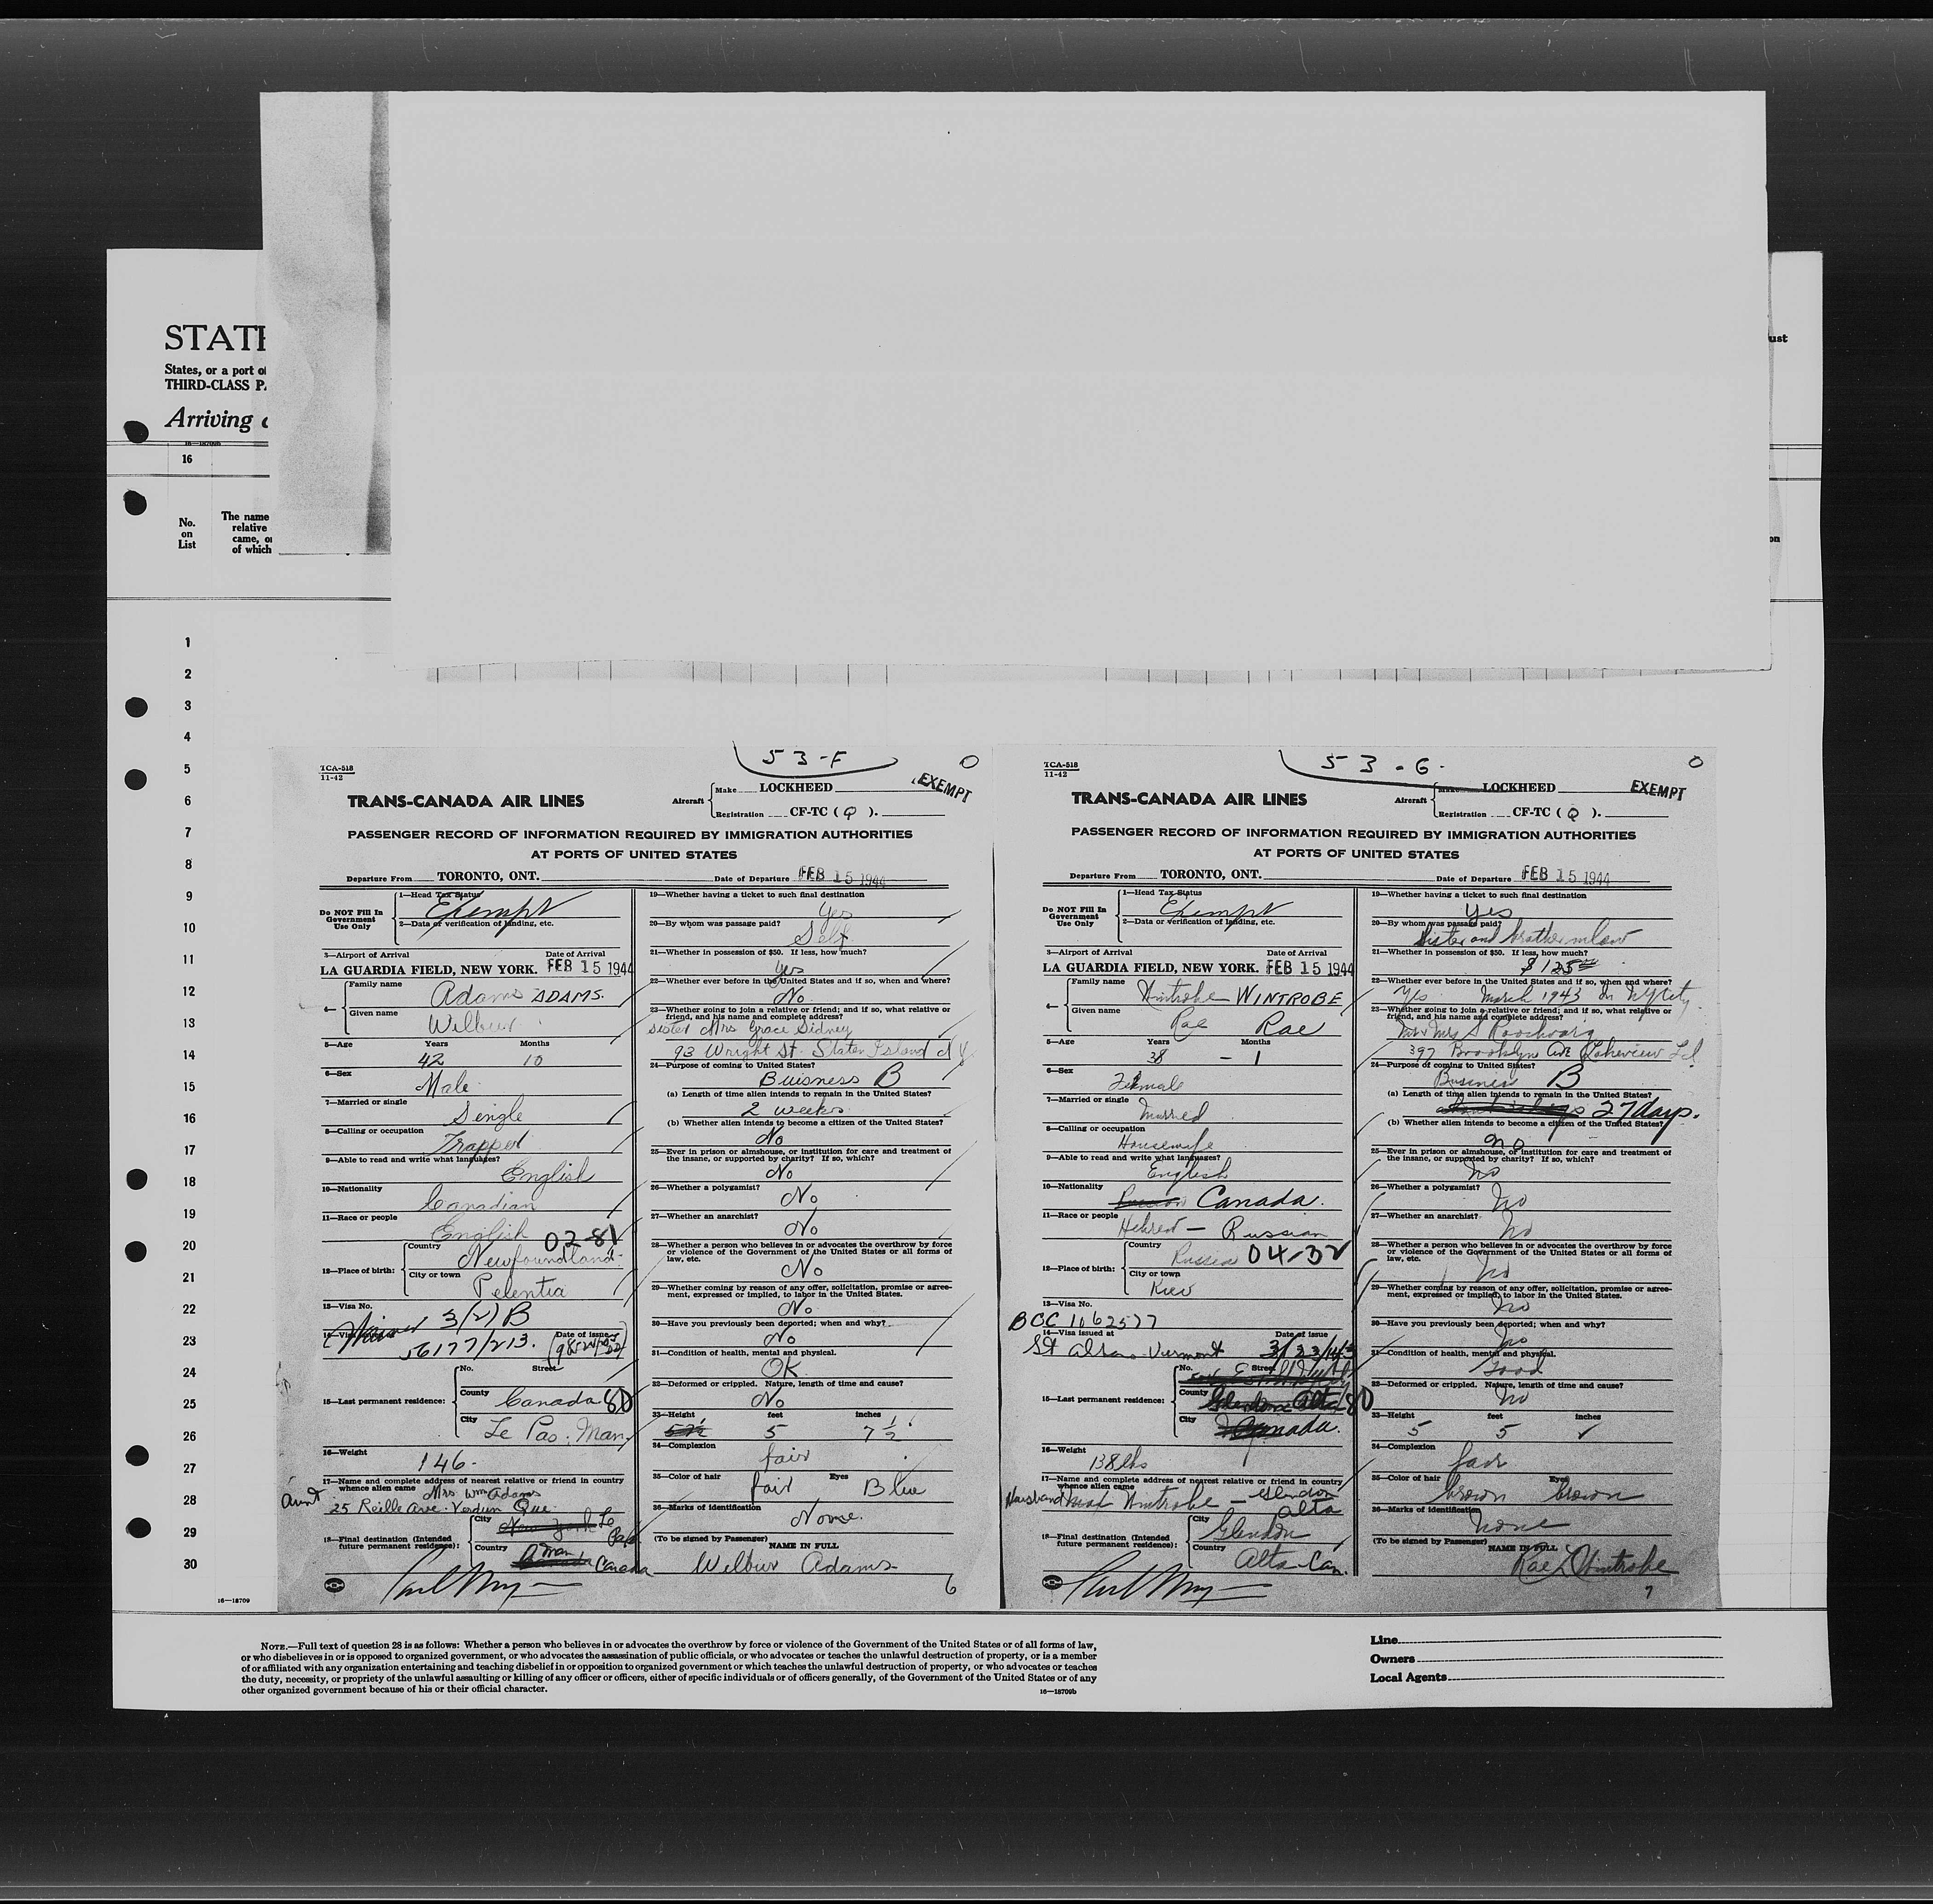 STATE
States, or a port of
THIRD-CLASS PA
Arriving a
ust
16
No. on List
The name
relative
came, or
of which
on
1
2
3
4
5
6
7
8
9
10
11
12
13
14
15
16
17
18
19
20
21
22
23
24
25
26
27
28
29
30
16—18709
53-F
TCA-518
11-42
EXEMPT
TRANS-CANADA AIR LINES
Aircraft
Make LOCKHEED
Registration CF-TC ( Q ).
PASSENGER RECORD OF INFORMATION REQUIRED BY IMMIGRATION AUTHORITIES
AT PORTS OF UNITED STATES
Departure From TORONTO, ONT. Date of Departure FEB 15 1944
Do NOT Fill In Government Use Only
1—Head Tax Status
Exempt
2—Data or verification of landing, etc.
3—Airport of Arrival Date of Arrival
LA GUARDIA FIELD, NEW YORK. FEB 15 1944
4— Family name
Adams ADAMS.
Given name
Wilbur
5—Age Years Months
42 10
6—Sex
Male
7—Married or single
Single
8—Calling or occupation
Trapper
9—Able to read and write what languages?
English
10—Nationality
Canadian
11—Race or people
English 02-81
12—Place of birth: Country
Newfoundland
City or town
Pelentia
13—Visa No.
3/(2) B
Date of issue
56177/213.
15—Last permanent residence: No. Street
County
Canada 80
City
Le Pas. Man
16—Weight
146-
17—Name and complete address of nearest relative or friend in country
whence alien came Mrs. Wm Adams
Aunt 25 Reille Ave. Verdun Que.
18—Final destination (Intended future permanent residence): City
New York Le Pas
Country
Man
Canada Canada
19—Whether having a ticket to such final destination
Yes
20—By whom was passage paid?
Self
21—Whether in possession of $50. If less, how much?
Yes
22—Whether ever before in the United States and if so, when and where?
No.
23—Whether going to join a relative or friend; and if so, what relative or
friend, and his name and complete address?
Sister Mrs Grace Sidney
93 Wright St. Staten Island N Y
24—Purpose of coming to United States?
Buisness B
(a) Length of time alien intends to remain in the United States?
2 weeks
(b) Whether alien intends to become a citizen of the United States?
No
25—Ever in prison or almshouse, or institution for care and treatment of
the insane, or supported by charity? If so, which?
No
26—Whether a polygamist?
No
27—Whether an anarchist?
No
28—Whether a person who believes in or advocates the overthrow by force
or violence of the Government of the United States or all forms of
law, etc.
No
29—Whether coming by reason of any offer, solicitation, promise or agree-
ment, expressed or implied, to labor in the United States.
No
30—Have you previously been deported; when and why?
No
31—Condition of health, mental and physical.
OK
32—Deformed or crippled. Nature, length of time and cause?
No
33—Height feet inches
5 7 1/2
34—Complexion
fair
35—Color of hair Eyes
fair Blue
36—Marks of identification
None.
(To be signed by Passenger) NAME IN FULL
Wilbur Adams
6
53-G.
TCA-518
11-42
EXEMPT
TRANS-CANADA AIR LINES
Aircraft
Make LOCKHEED
Registration CF-TC ( Q ).
PASSENGER RECORD OF INFORMATION REQUIRED BY IMMIGRATION AUTHORITIES
AT PORTS OF UNITED STATES
Departure From TORONTO, ONT. Date of Departure FEB 15 1944
Do NOT Fill In Government Use Only
1—Head Tax Status
Exempt
2—Data or verification of landing, etc.
3—Airport of Arrival Date of Arrival
LA GUARDIA FIELD, NEW YORK. FEB 15 1944
4— Family name
Wintrobe WINTROBE
Given name
Rae Rae
5—Age Years Months
38 - 1
6—Sex
Female
7—Married or single
Married
8—Calling or occupation
Housewife
9—Able to read and write what languages?
English
10—Nationality
Canada.
11—Race or people
Hebrew - Russian
12—Place of birth: Country
Russia 04-32
City or town
Kiev
13—Visa No.
BCC 1062577
14—Visa issued at Date of issue
St Albans Vermont 3/23/43
15—Last permanent residence: No. Street
County
Glendon Alta 80
City
Canada.
16—Weight
138 lbs
17—Name and complete address of nearest relative or friend in country
whence alien came
Husband Wintrobe - Glendon
Alta
18—Final destination (Intended future permanent residence): City
Glendon
Country
Alta - Can.
19—Whether having a ticket to such final destination
Yes
20—By whom was passage paid?
Sister and brother in law
21—Whether in possession of $50. If less, how much?
$125.00
22—Whether ever before in the United States and if so, when and where?
Yes March 1943 In NY City
23—Whether going to join a relative or friend; and if so, what relative or
friend, and his name and complete address?
Mr & Mrs S Roochvarg
397 Brooklyn Ave Lakeview L.I.
24—Purpose of coming to United States?
Business B
(a) Length of time alien intends to remain in the United States?
27 days.
(b) Whether alien intends to become a citizen of the United States?
no
25—Ever in prison or almshouse, or institution for care and treatment of
the insane, or supported by charity? If so, which?
no
26—Whether a polygamist?
no
27—Whether an anarchist?
no
28—Whether a person who believes in or advocates the overthrow by force
or violence of the Government of the United States or all forms of
law, etc.
no
29—Whether coming by reason of any offer, solicitation, promise or agree-
ment, expressed or implied, to labor in the United States.
no
30—Have you previously been deported; when and why?
no
31—Condition of health, mental and physical.
Good
32—Deformed or crippled. Nature, length of time and cause?
no
33—Height feet inches
5 5
34—Complexion
fair
35—Color of hair Eyes
brown brown
36—Marks of identification
none
(To be signed by Passenger) NAME IN FULL
Rae Wintrobe
7
NOTE.—Full text of question 28 is as follows: Whether a person who believes in or advocates the overthrow by force or violence of the Government of the United States or of all forms of law,
or who disbelieves in or is opposed to organized government, or who advocates the assassination of public officials, or who advocates or teaches the unlawful destruction of property, or is a member
of or affiliated with any organization entertaining and teaching disbelief in or opposition to organized government or which teaches the unlawful destruction of property, or who advocates or teaches
the duty, necessity, or propriety of the unlawful assaulting or killing of any officer or officers, either of specific individuals or of officers generally, of the Government of the United States or of any
other organized government because of his or their official character.
16—18709b
Line
Owners
Local Agents